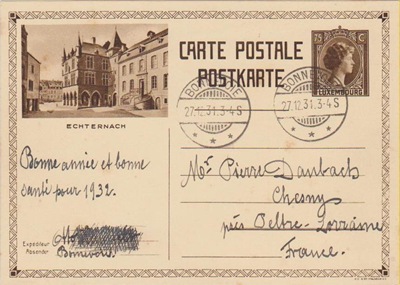 CARTE POSTALE
POSTKARTE
75 C
LUXEMBOURG
BONNEVOIE
27.12.31.3-4S
BONNEVOIE
27.12.31.3-4S
ECHTERNACH
Bonne année et bonne
santé pour 1932.
Mr Pierre Daubach
Chesny
près Peltre-Lorraine
France.
Expéditeur
Absender
Bonnevoie